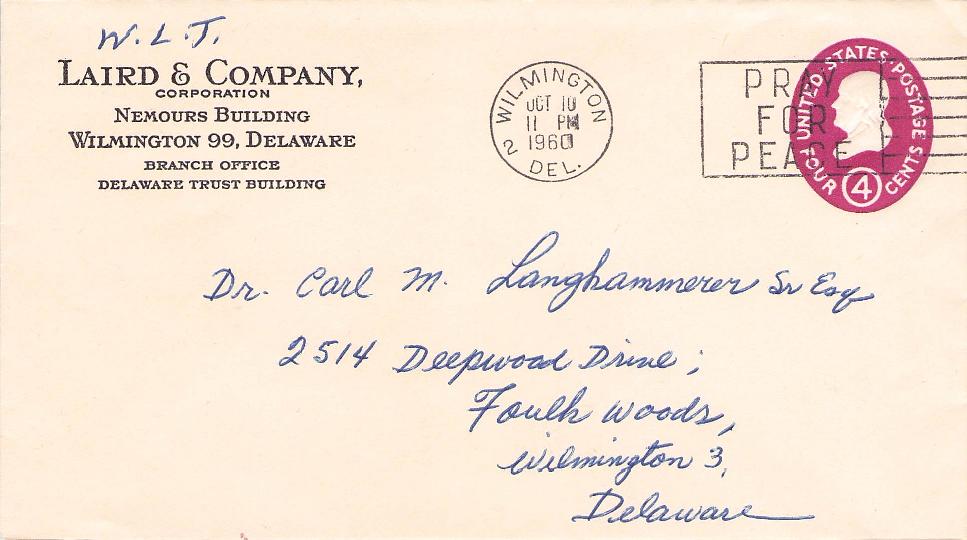 W. L. T.
LAIRD & COMPANY,
CORPORATION
NEMOURS BUILDING
WILMINGTON 99, DELAWARE
BRANCH OFFICE
DELAWARE TRUST BUILDING
WILMINGTON
OCT 10
11 PM
1960
2 DEL.
PRAY
FOR
PEACE
UNITED STATES POSTAGE
FOUR 4 CENTS
Dr. Carl M. Langhammerer Sr Esq
2514 Deepwood Drive;
Foulk Woods,
Wilmington 3,
Delaware